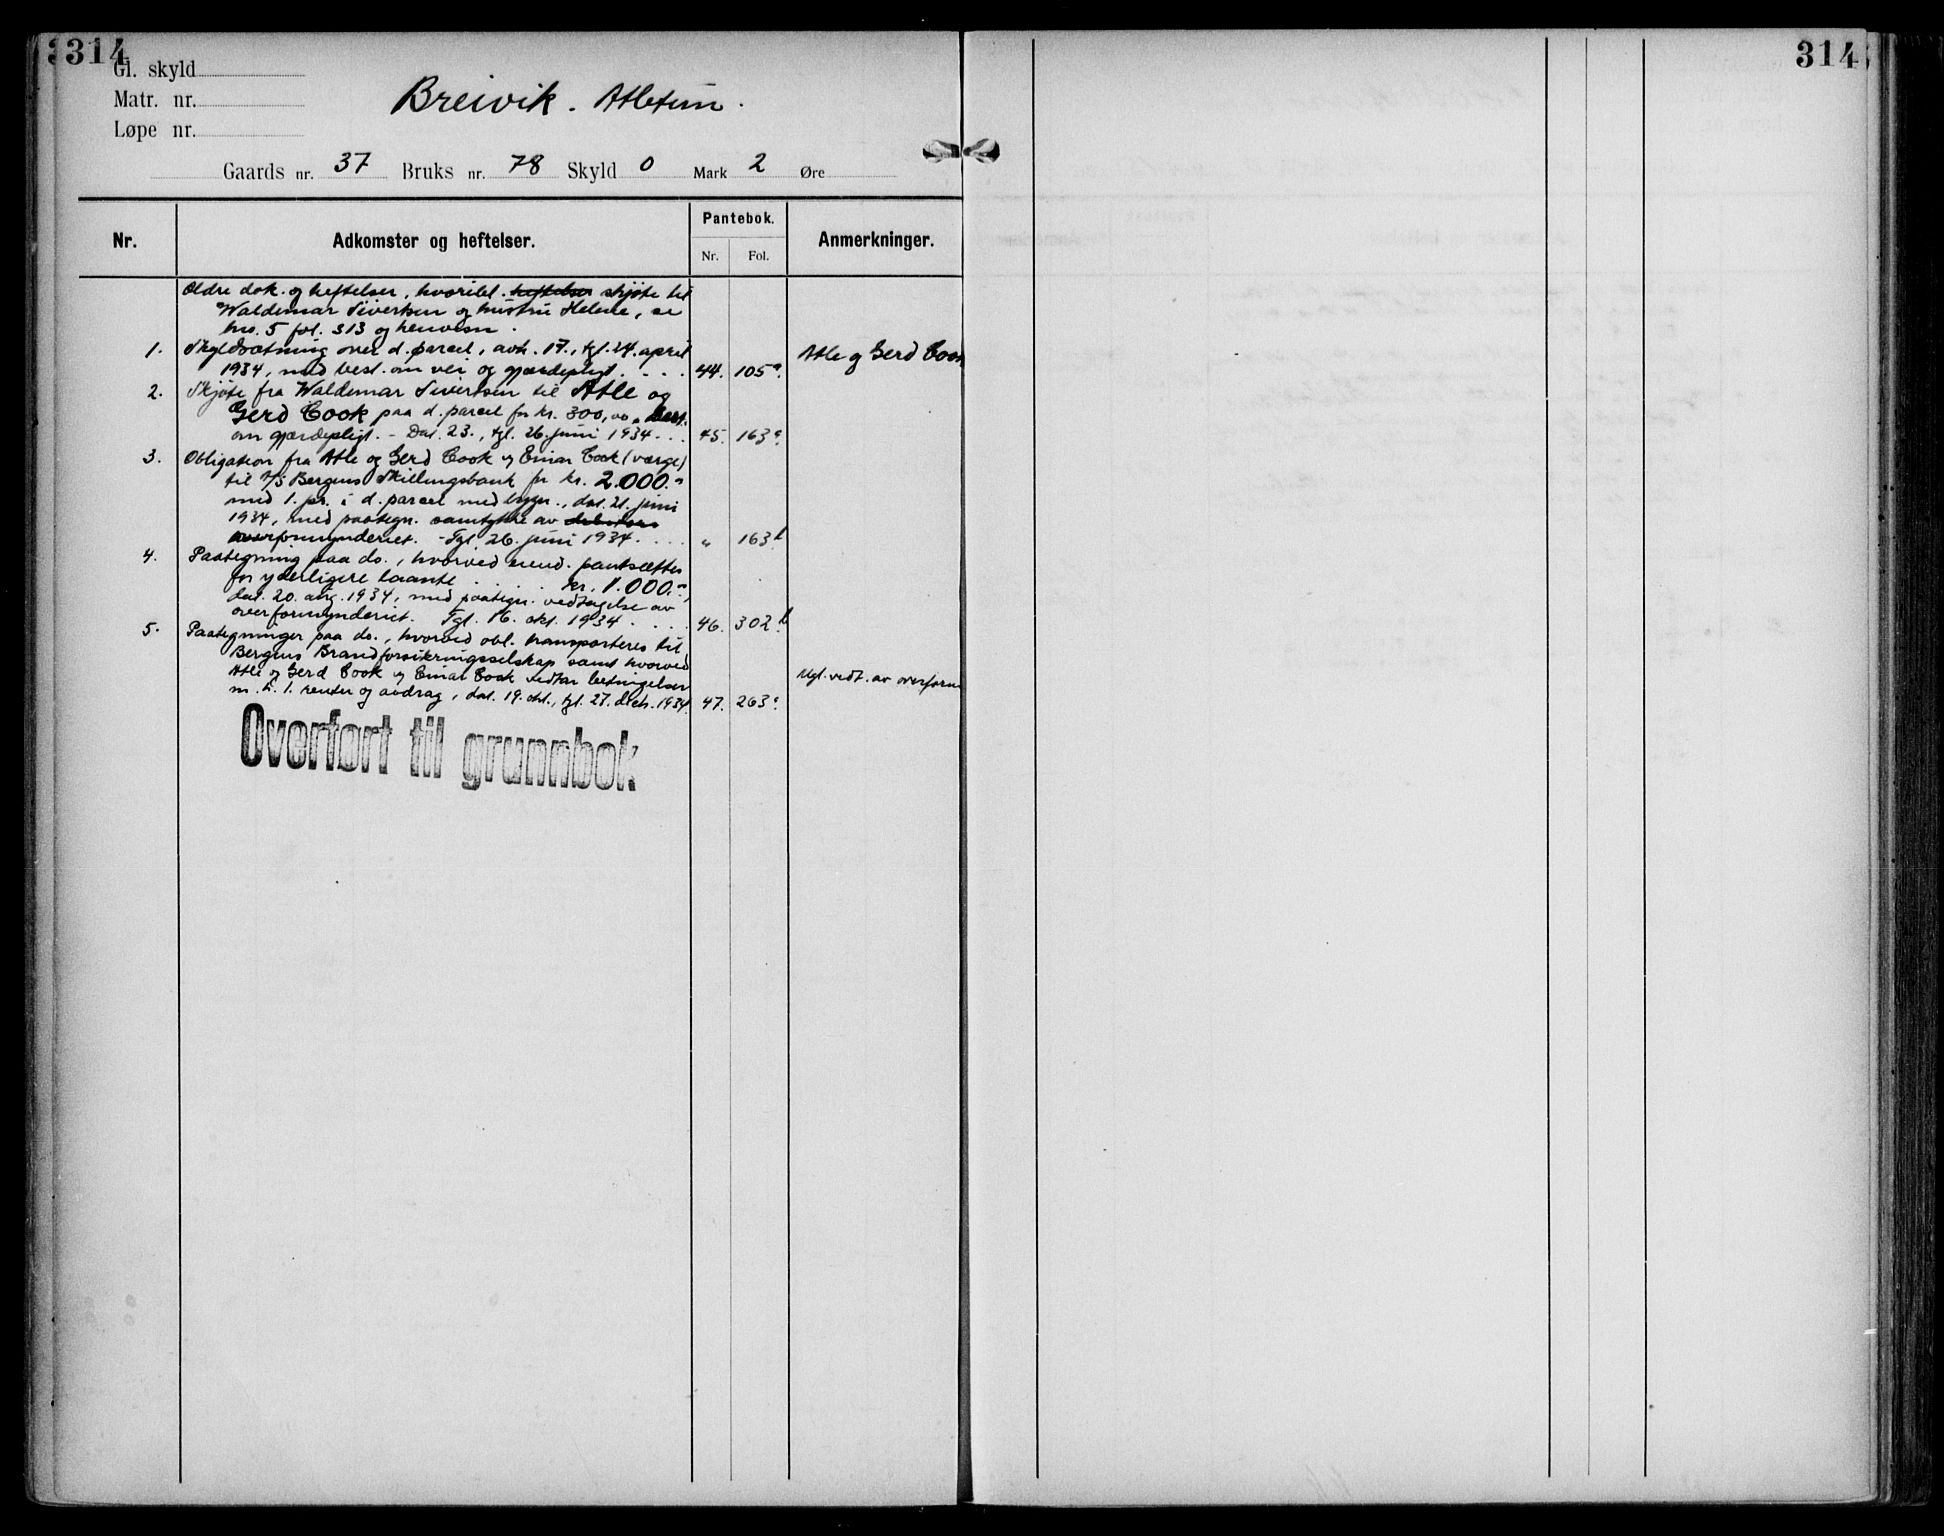 314
Gl. skyld
Matr. nr.
Løpe nr.
Breivik. Atletun.
Gaards nr. 37 Bruks nr. 78 Skyld 0 Mark 2 Øre
Nr. Adkomster og heftelser. Pantebok. Anmerkninger.
Nr. Fol.
Ældre dok. og heftelser, hvoribl. heftelser skjøte til
Waldemar Sivertsen og hustru Helene, se
bno. 5 fol. 313 og henvisn.
1. Skyldsætning over d. parcel, avh. 17., tgl. 24. april Atle og Gerd Cook
1934, med best. om vei og gjærdepligt. 44. 105a.
2. Skjøte fra Waldemar Sivertsen til Atle og
Gerd Cook paa d. parcel for kr. 300,00. Best.
om gjærdepligt. - Dat. 23., tgl. 26. juni 1934. 45. 163a.
3. Obligation fra Atle og Gerd Cook og Einar Cook (værge)
til A/S Bergens Skillingsbank for kr. 2.000.-
med 1. pr. i d. parcel med bygn., dat. 21. juni
1934, med paategn. samtykke av debitors
overformynderiet. - Tgl. 26. juni 1934. " 163b
4. Paategning paa do., hvorved eiend. pantsættes
for yderligere laante kr. 1.000.-,
dat. 20. aug. 1934, med paategn. vedtagelse av
overformynderiet. Tgl. 16. okt. 1934. 46. 302b.
5. Paategninger paa do., hvorved obl. transporteres til
Bergens Brandforsikringsselskap samt hvorved
Atle og Gerd Cook og Einar Cook vedtar betingelser Mgl. vedt. av overform
m. h. t. renter og avdrag, dat. 19. okt., tgl. 27. decb. 1934. 47. 263a.
Overført til grunnbok
314